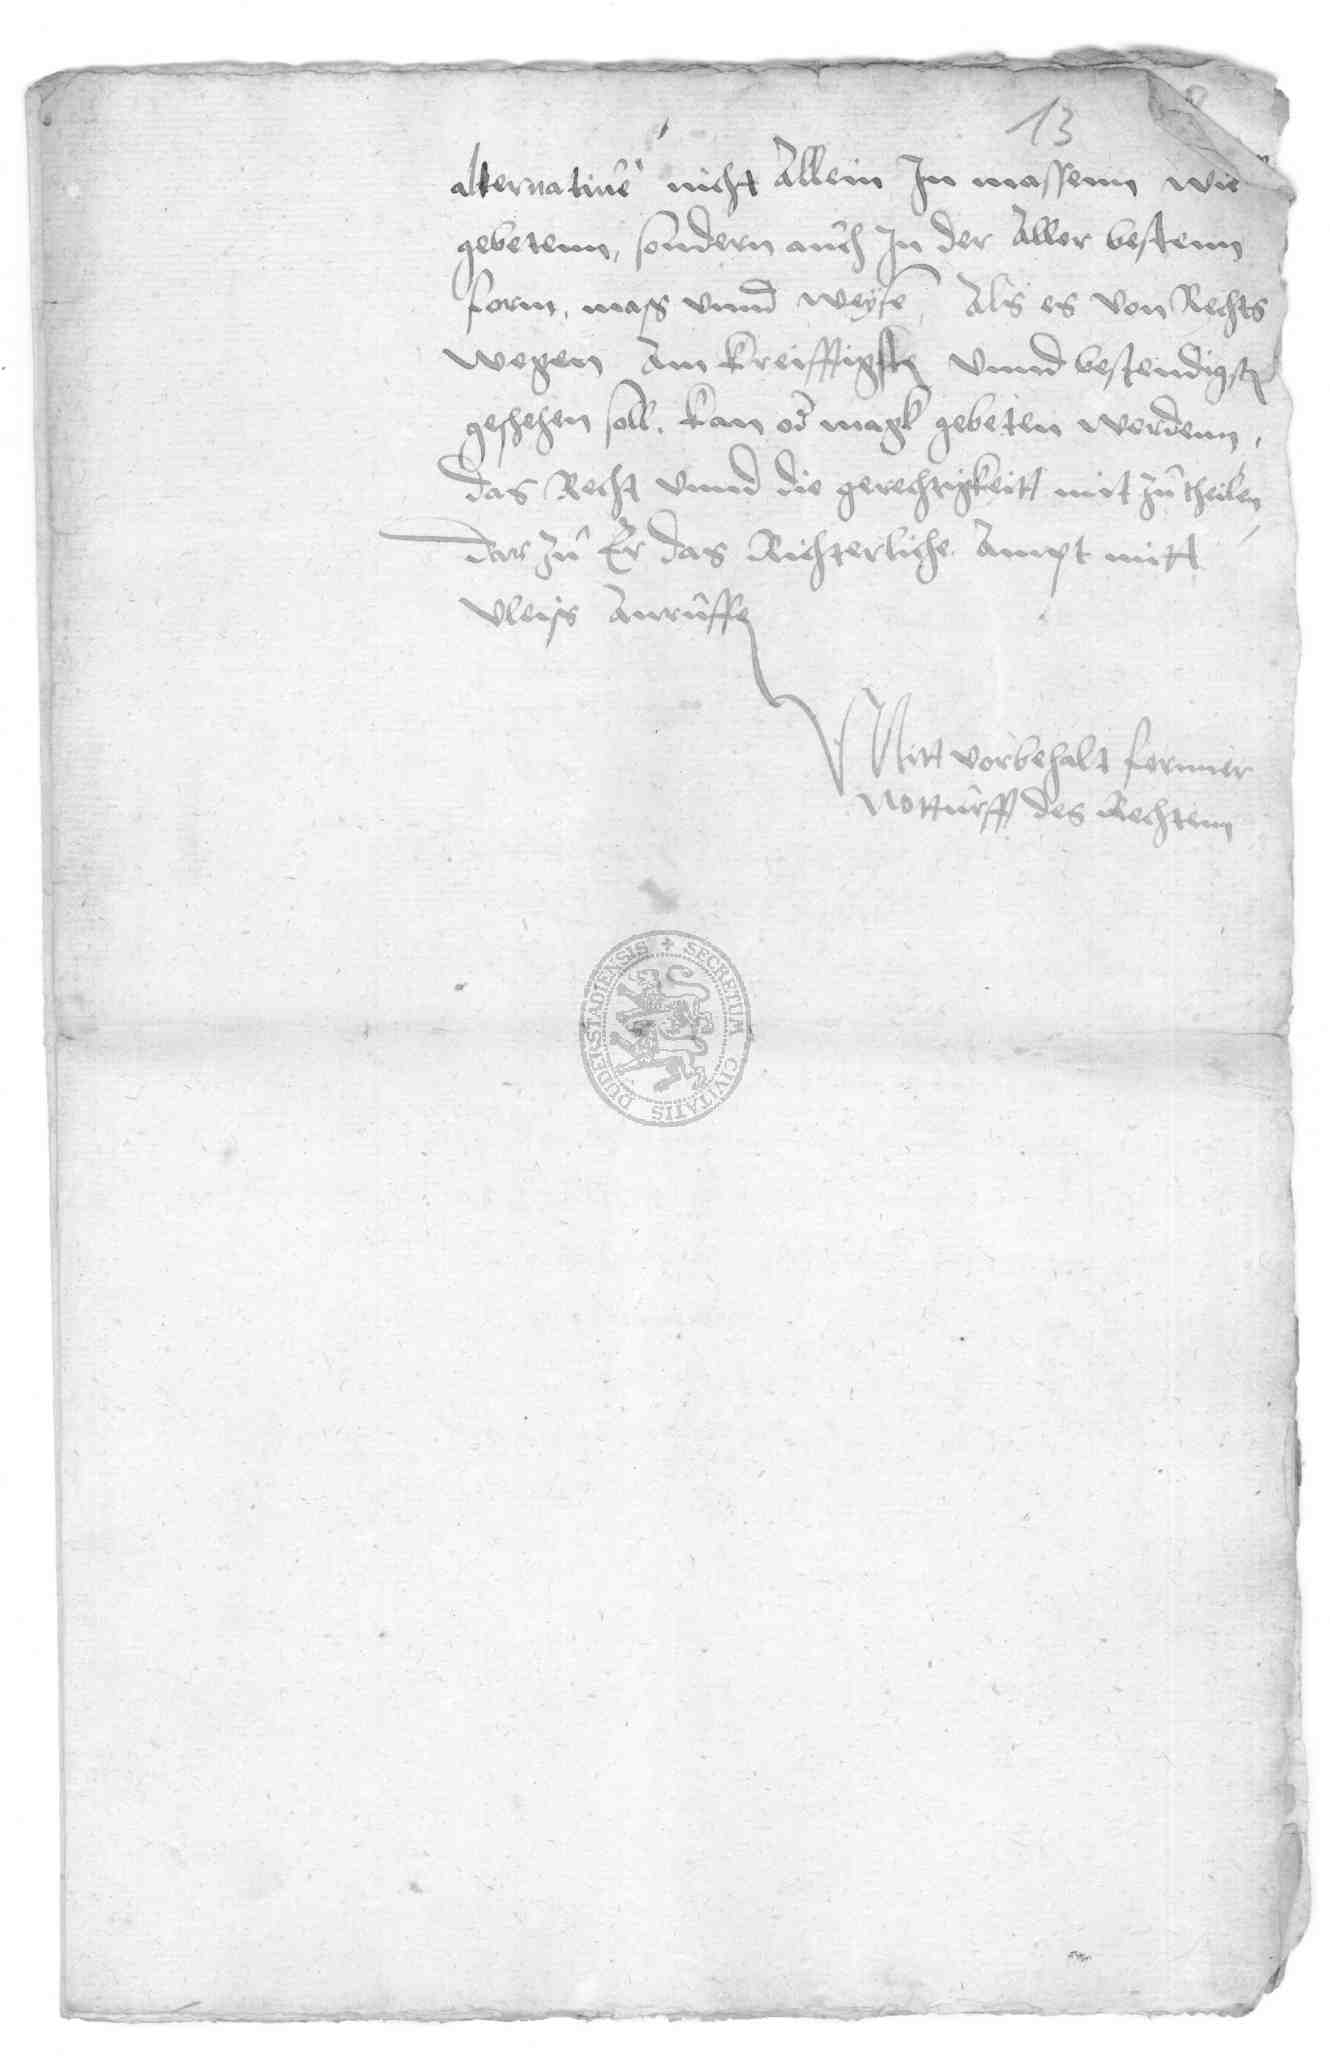 13
alternatiue nicht Allein In massenn wie
gebetenn, sondern auch In der Aller bestenn
form, mass vnnd weyse, Als es von Rechts
wegen Am kreifftigsten vnnd bestendigsten
geschehen soll, kan od magk gebeten werdenn,
das Recht vnnd die gerechtigkeitt mit zu theilen
dar zu Er das Richterliche Ampt mitt
vleiss Anruffe
Mitt vorbehalt fernner
Notturfft des Rechtenn
SECRETUM CIVITATIS DUDERSTADIENSIS